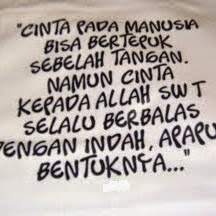 "CINTA PADA MANUSIA
BISA BERTEPUK
SEBELAH TANGAN.
NAMUN CINTA
KEPADA ALLAH SWT
SELALU BERBALAS
DENGAN INDAH, APAPU
BENTUKNYA..."